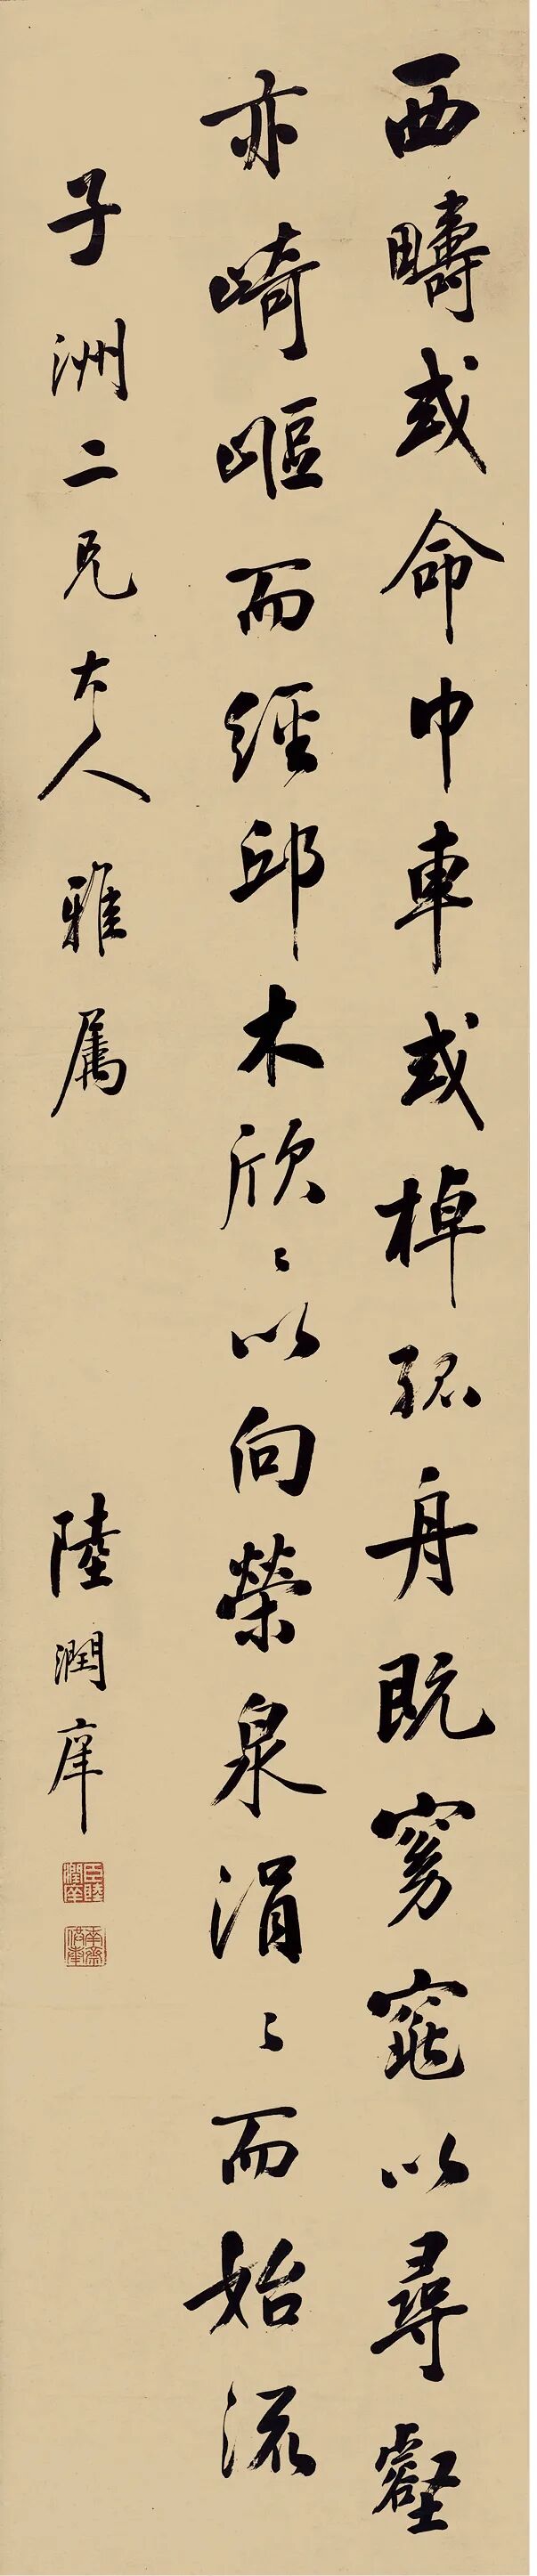 西疇或命巾車或棹孤舟既窈窕以尋壑
亦崎嶇而經邱木欣〻以向榮泉涓〻而始流
子洲二兄大人雅属
陸潤庠
臣陸潤庠
南齋供奉